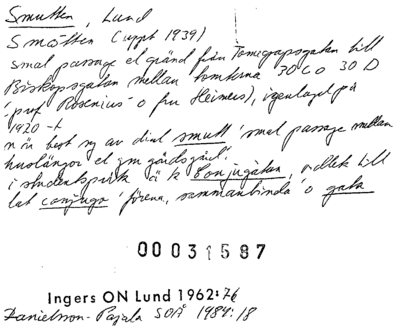 Smutten, Lund
Smötten (uppt 1939)
smal passage el gränd från Tomegapsgatan till
Biskopsgatan mellan tomterna 30 C o 30 D
(prof Rosenius' o fru Heimers), igenlagd på
1920-t
n är best sg av dial smutt 'smal passage mellan
huslängor el gm gårdsgård'.
i studentspråk ä k Conjugatan, ordlek till
lat conjugo 'förena, sammanbinda' o gata
00031587
Ingers ON Lund 1962:76
Danielsson-Pajala SOÅ 1984:18